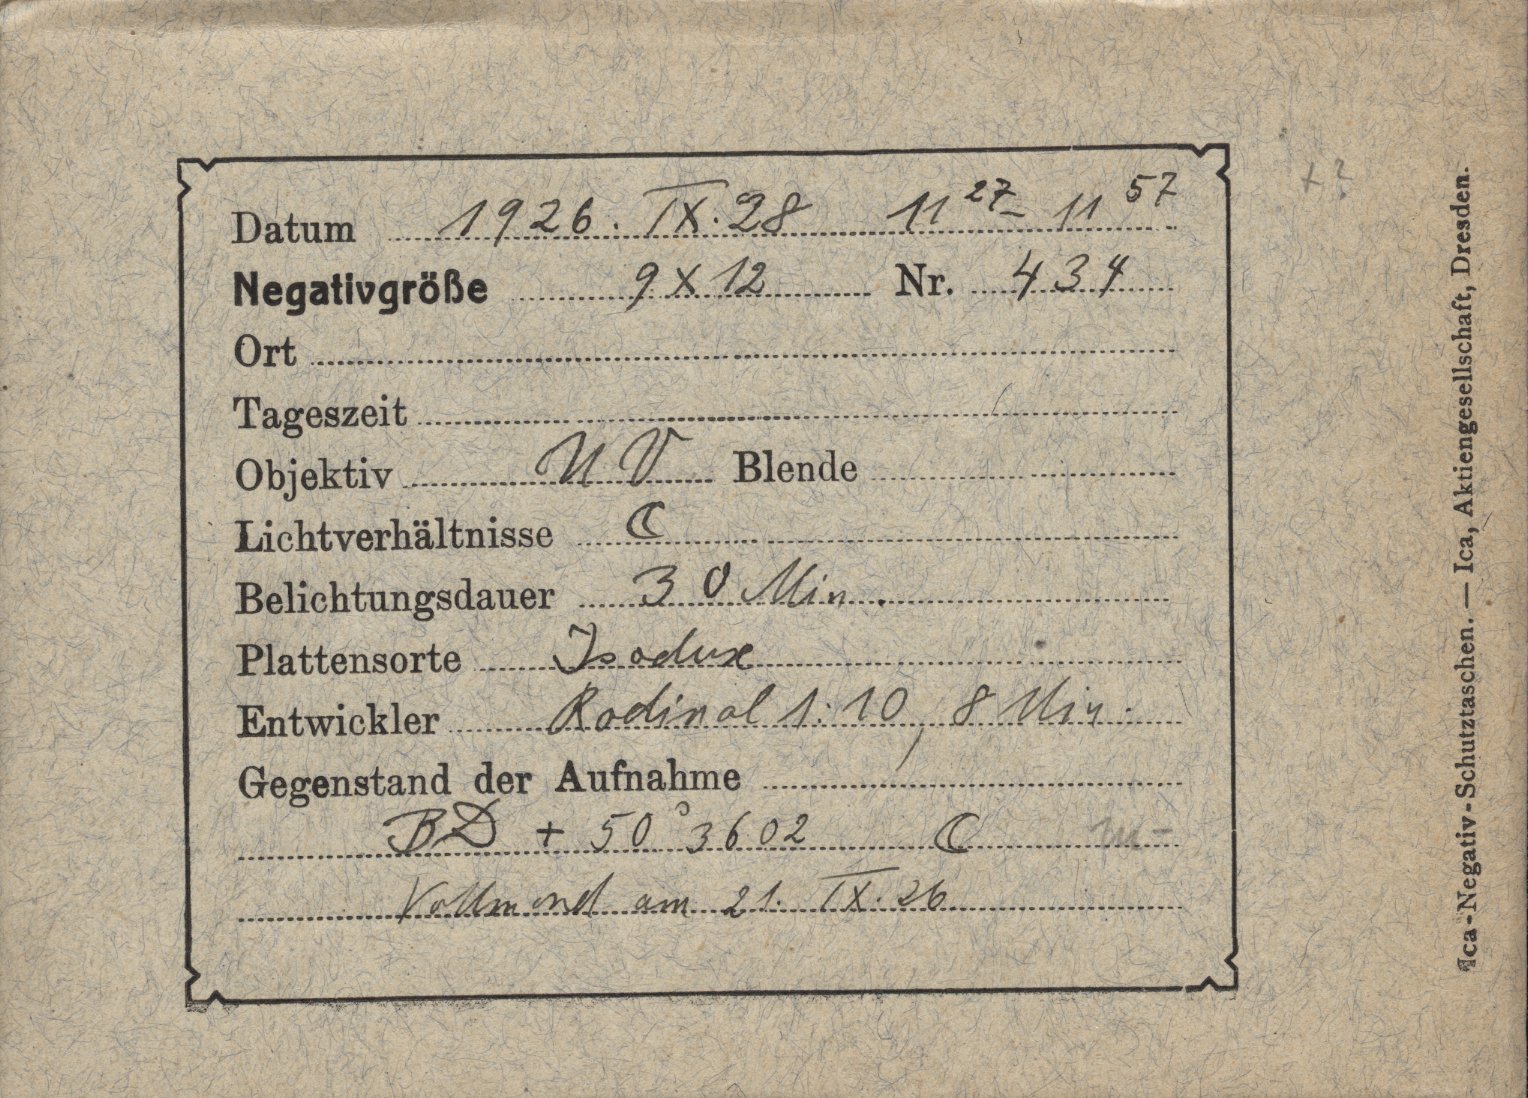 Datum 1926. IX. 28 11 27 - 11 57
Negativgröße 9 x 12 Nr. 434
Ort
Tageszeit
Objektiv UV Blende
Lichtverhältnisse ☾
Belichtungsdauer 30 Min.
Plattensorte Isodux
Entwickler Rodinal 1:10, 8 Min.
Gegenstand der Aufnahme
BD + 50° 3602 ☾
Vollmond am 21. IX. 26
+ ?
Ica-Negativ-Schutztaschen. — Ica, Aktiengesellschaft, Dresden.